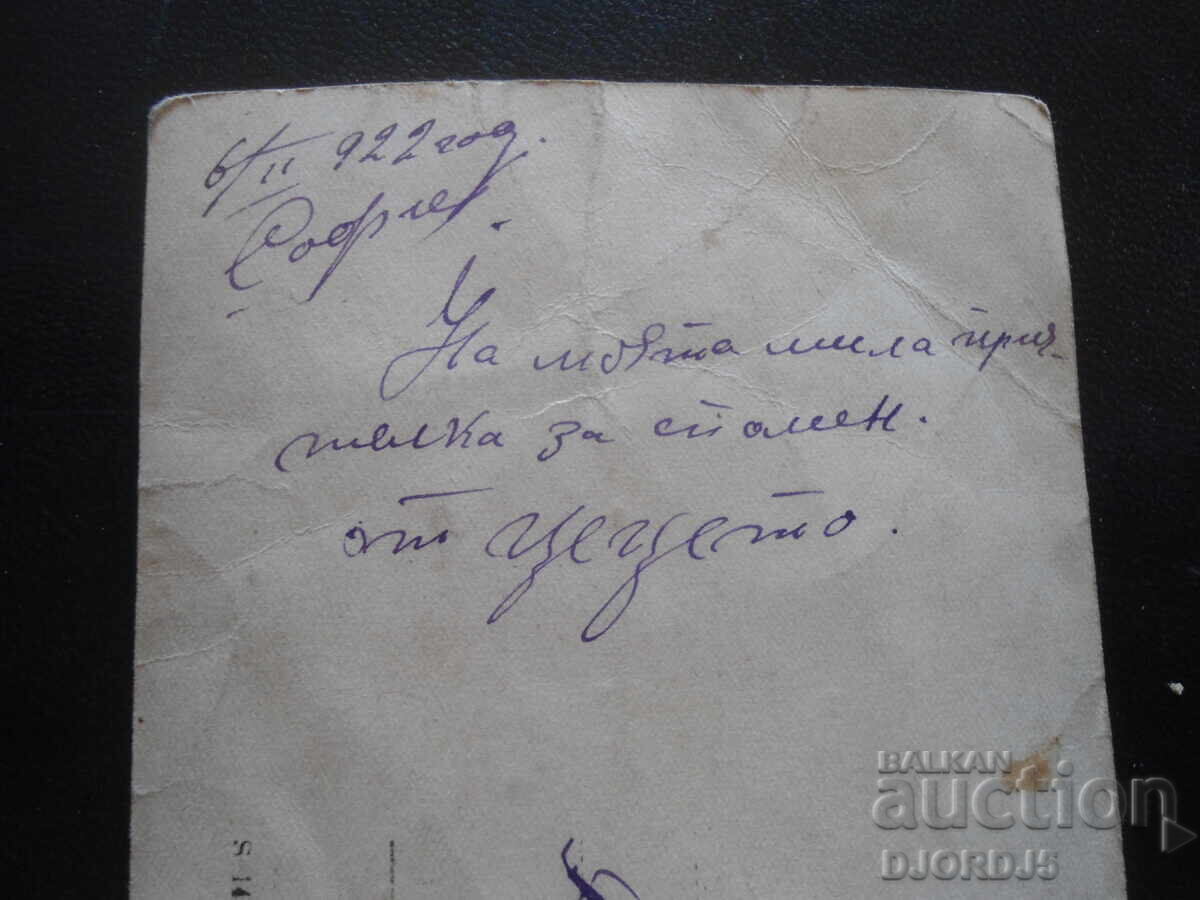 6/II 922 год.
София.
На моята мила прия-
телка за спомен.
от Цецето.
BALKAN
auction
DJORDJ5
S